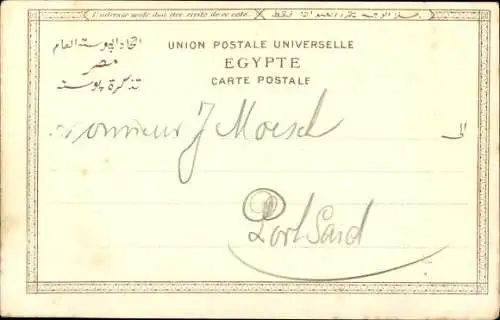 L'adresse seule doit être écrite de ce côté
UNION POSTALE UNIVERSELLE
EGYPTE
CARTE POSTALE
اتحاد البوسته العام
مصر
تذكرة بوسته
Monsieur J Moesch
الى
Port Said